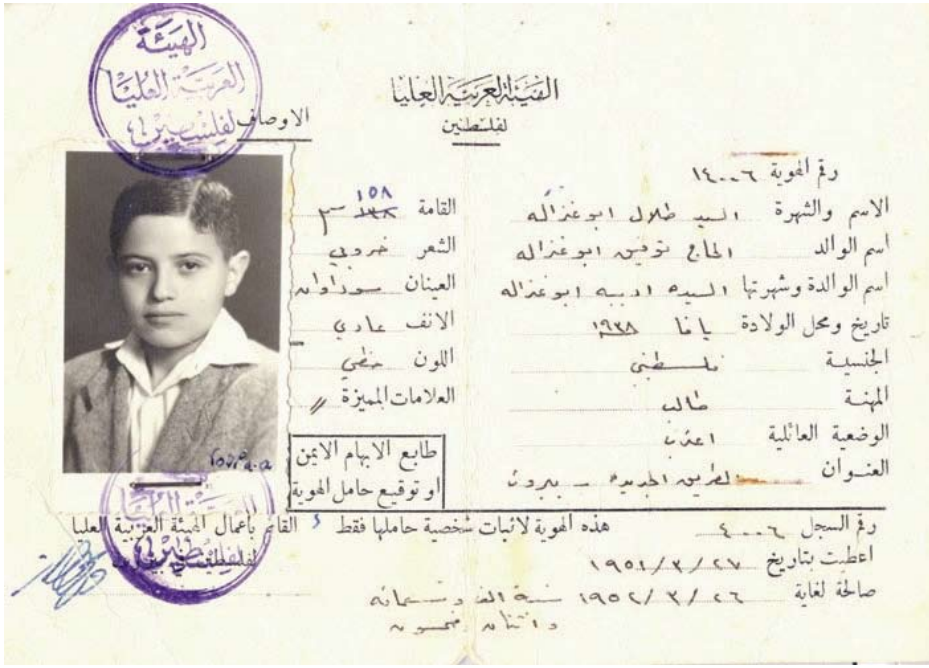 الهيئة العربية العليا
لفلسطين
الهيئة
العربية العليا
لفلسطين
الاوصاف
رقم الهوية ١٤٠٠٦
الاسم والشهرة السيد طلال ابو غزاله
اسم الوالد الحاج توفيق ابو غزاله
اسم الوالدة وشهرتها السيده اديبه ابو غزاله
تاريخ ومحل الولادة يافا ١٩٣٨
الجنسية فلسطيني
المهنة طالب
الوضعية العائلية اعزب
العنوان الطريق الجديده - بيروت
القامة ١٥٨
الشعر خروبي
العينان سوداوان
الانف عادي
اللون حنطي
العلامات المميزة //
طابع الابهام الايمن
او توقيع حامل الهوية
رقم السجل ٤٠٠٦
هذه الهوية لاثبات شخصية حاملها فقط
القائم بأعمال الهيئة العربية العليا
لفلسطين في
اعطيت بتاريخ ١٩٥١/٣/٢٧
صالحة لغاية ١٩٥٢/٣/٢٦ سنة الف وتسعمائه
واثنان وخمسون